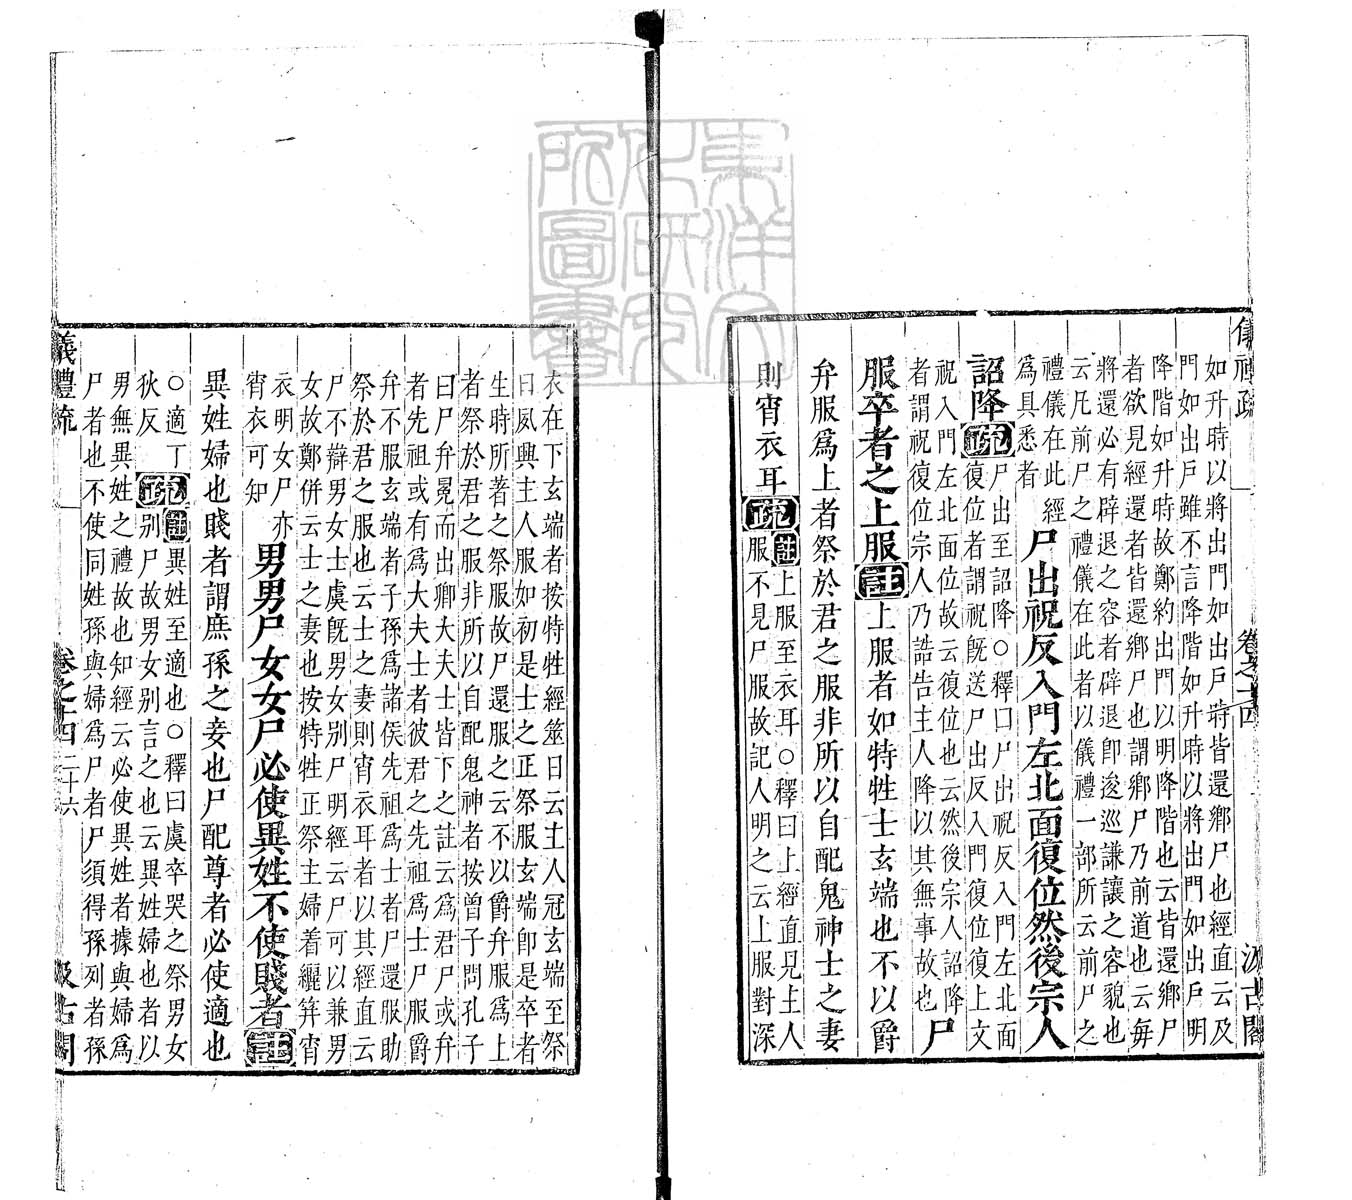 如升時以將出門如出戶時皆還鄉尸也經直云及
門如出戶雖不言降階如升時以將出門如出戶明
降階如升時故鄭約出門以明降階也云皆還鄉尸
者欲見經還者皆還鄉尸也謂鄉尸乃前道也云每
將還必有辟退之容者辟退卽逡巡謙讓之容貌也
云凡前尸之禮儀在此者以儀禮一部所云前尸之
禮儀在此經
為具悉者
尸出祝反入門左北面復位然後宗人
詔降疏
尸出至詔降○釋曰尸出祝反入門左北面
復位者謂祝旣送尸出反入門復位復上文
祝入門左北面位故云復位也云然後宗人詔降
者謂祝復位宗人乃誥告主人降以其無事故也
尸
服卒者之上服註上服者如特牲士玄端也不以爵
弁服爲上者祭於君之服非所以自配鬼神士之妻
則宵衣耳疏
註上服至衣耳○釋曰上經直見主人
服不見尸服故記人明之云上服對深
衣在下玄端者按特牲經筮日云主人冠玄端至祭
日夙興主人服如初是士之正祭服玄端卽是卒者
生時所著之祭服故尸還服之云不以爵弁服爲上
者祭於君之服非所以自配鬼神者按曾子問孔子
曰尸弁冕而出卿大夫士皆下之註云爲君尸或弁
者先祖或有爲大夫士者彼君之先祖爲士尸服爵
弁不服玄端者子孫爲諸侯先祖爲士者尸還服助
祭於君之服也云士之妻則宵衣耳者以其經直云
尸不辯男女士虞旣男女别尸明經云尸可以兼男
女故鄭併云士之妻也按特牲正祭主婦着纚笄宵
衣明女尸亦
宵衣可知
男男尸女女尸必使異姓不使賤者註
異姓婦也賤者謂庶孫之妾也尸配尊者必使適也
○適丁
狄反
疏
註異姓至適也○釋曰虞卒哭之祭男女
别尸故男女别言之也云異姓婦也者以
男無異姓之禮故也知經云必使異姓者據與婦爲
尸者也不使同姓孫與婦爲尸者尸須得孫列者孫
儀禮疏
卷之十四
二十六
汲古閣